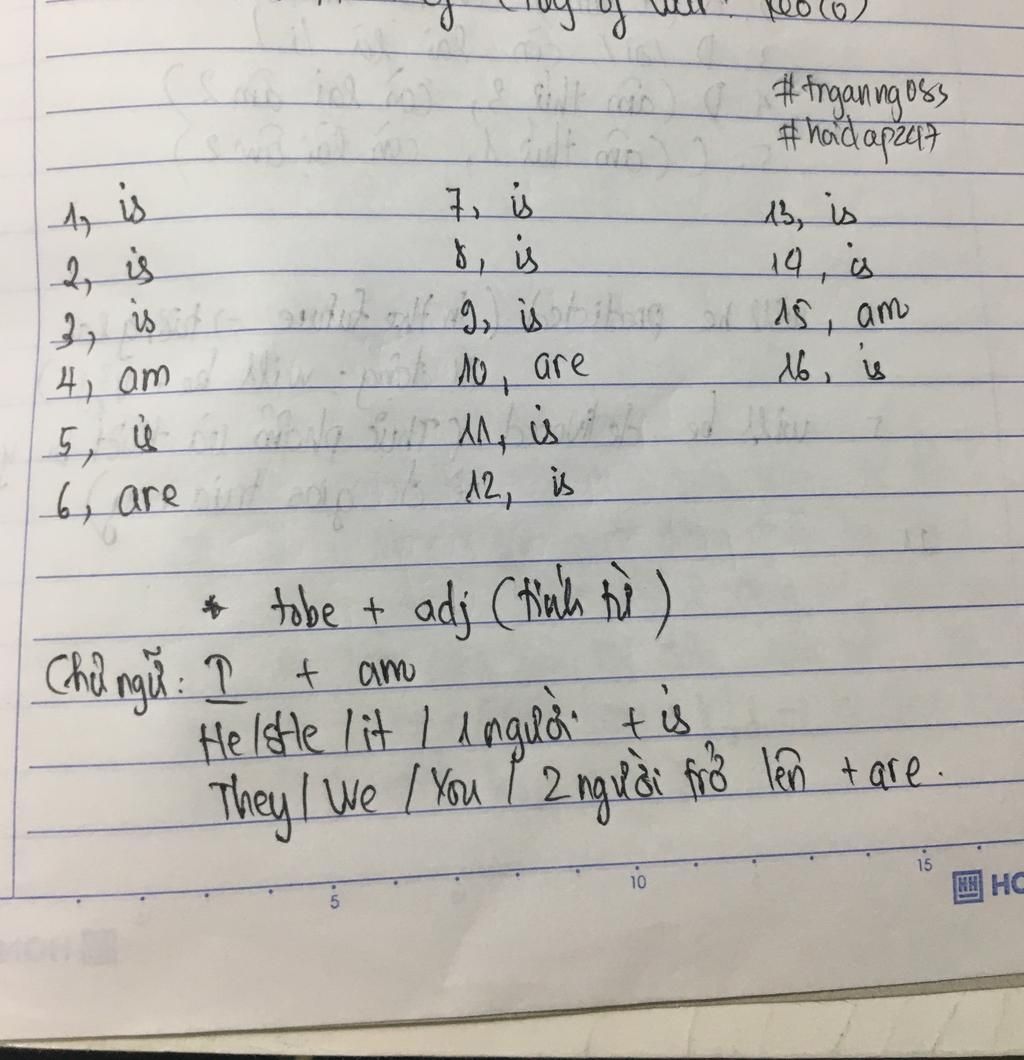 #trganng083
#hoidap247
1, is 7, is 13, is
2, is 8, is 14, is
3, is 9, is 15, am
4, am 10, are 16, is
5, is 11, is
6, are 12, is
* tobe + adj (tính từ)
Chủ ngữ: I + am
He/She/it / 1 người + is
They/We/You / 2 người trở lên + are.
5 10 15
HO